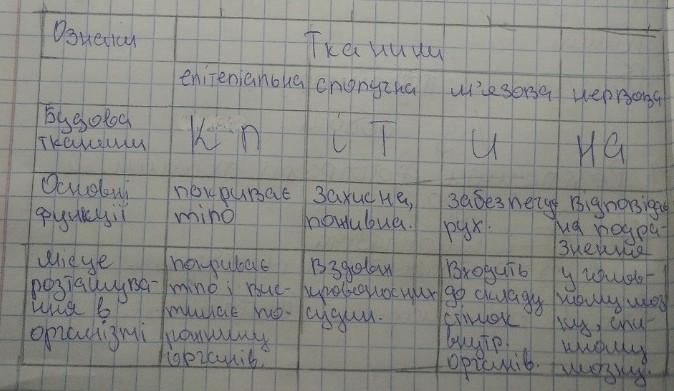 Ознаки Тканини
епітеліальна сполучна м'язова нервова
Будова
тканини
К п і Т и на
Основні
функції
покриває
тіло
захисна,
поживна.
забезпечує
рух.
відповідає
на подра-
знення
Місце
розташува-
ння в
організмі
покриває
тіло і вис-
тилає по-
рожнину
органів.
Вздовж
кровоносних
судин.
Входить
до складу
стінок
внутр.
органів.
у голов-
ному моз
ку, спи-
нному
мозку.